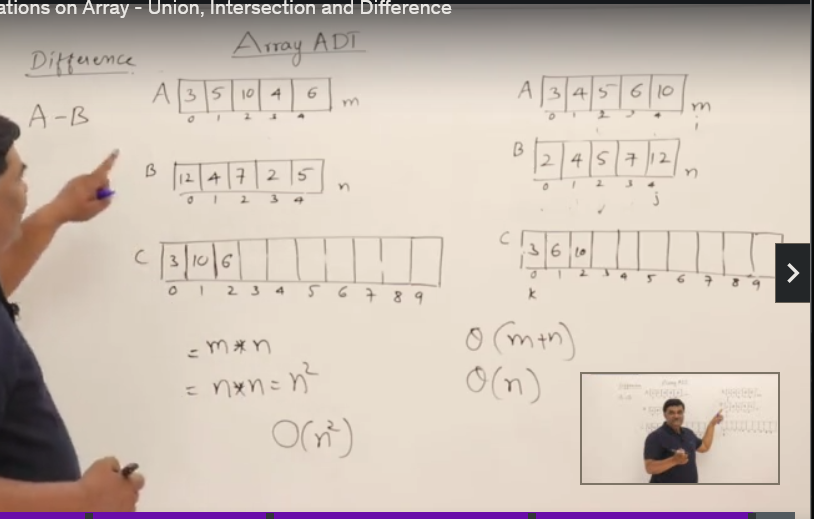 ations on Array - Union, Intersection and Difference
Difference
Array ADT
A - B
A 3 5 10 4 6 m
0 1 2 3 4
B 12 4 7 2 5 n
0 1 2 3 4
C 3 10 6
0 1 2 3 4 5 6 7 8 9
= m * n
= n * n = n²
O(n²)
A 3 4 5 6 10 m
0 1 2 3 4 i
B 2 4 5 7 12 n
0 1 2 3 4 j
C 3 6 10
0 1 2 3 4 5 6 7 8 9
k
θ(m+n)
θ(n)